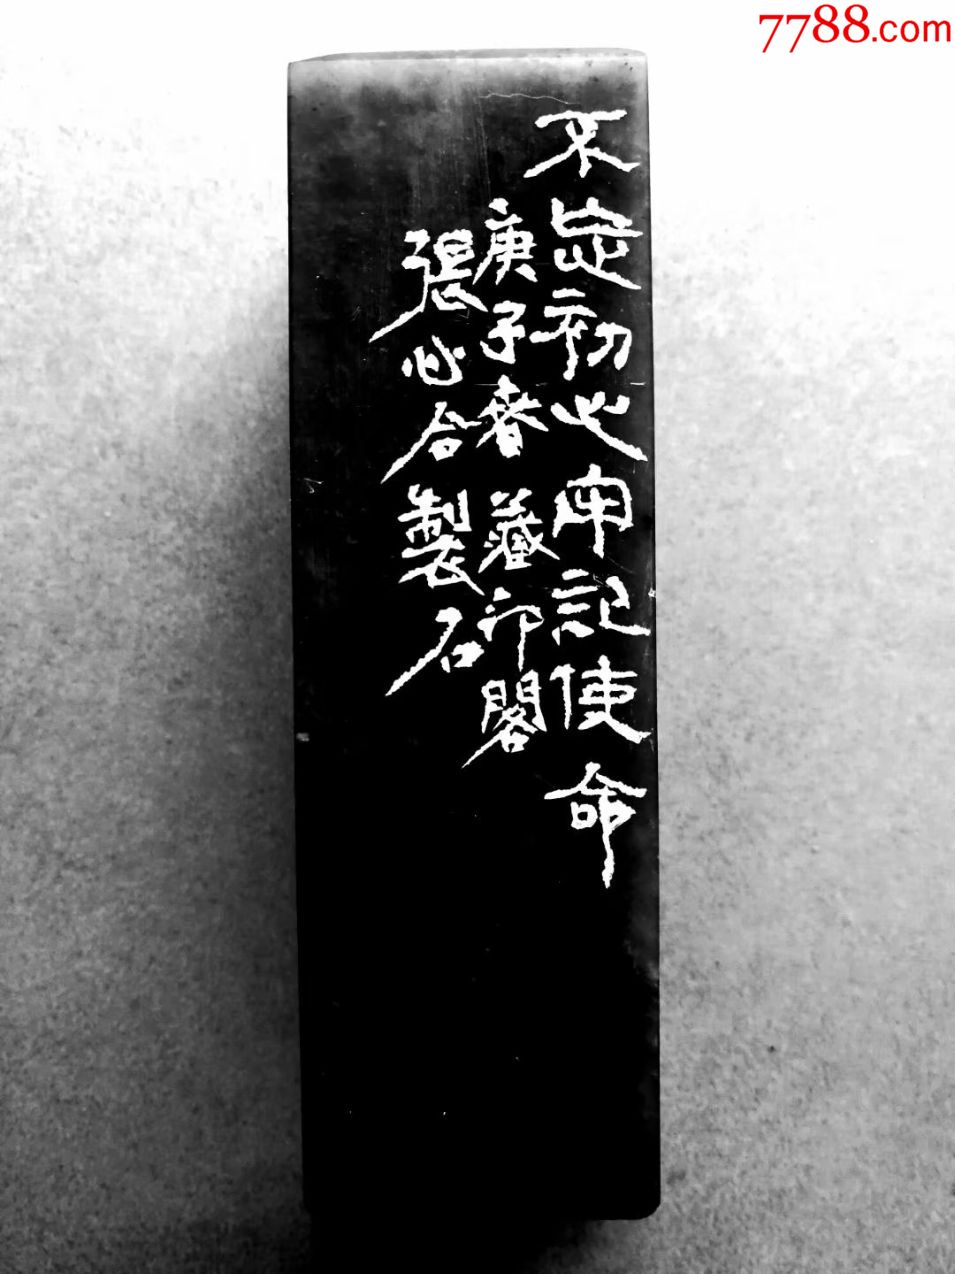 7788.com
不忘初心牢記使命
庚子春藏印閣
張心合製石